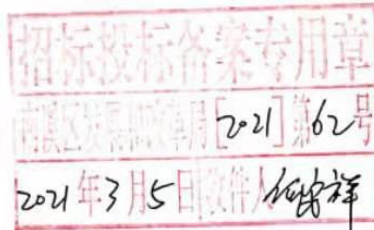 招标投标备案专用章
南溪区发展和改革局[2021]第62号
2021年3月5日收件人